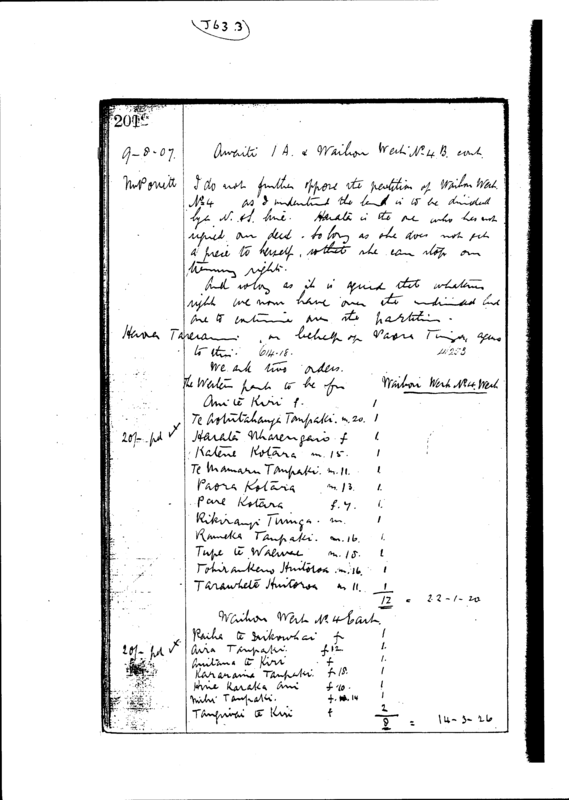 J63.3
201
9-8-07. Awaiti 1A. & Waihou West No. 4 B. cont.
I do not further oppose the partition of Waihou West
No 4 as I understand the land is to be divided
by a N. & S. line. Harata is the one who has not
signed our deed. So long as she does not get
a piece to herself, so that she can stop our
rights.
And so long as it is agreed that whatever
right we now have over the undivided land
are to continue over the partition.
Tareranui, on behalf of Paora Tiunga, agrees
to this. 614-18.
We ask two orders.
The Western part to be for Waihou West No 4 West
Ani te Kiri f. 1
Tanpaki. m. 20. 1
20/- pd Harata f 1
Katene Kotara m. 15. 1
Te Mamaru Tanpaki. m. 11. 1
Paora Kotara m. 13. 1
Pare Kotara f. 7. 1
Rikirangi Tiunga. m. 1
Rameka Tanpaki. m. 16. 1
Tupe te m. 18. 1
Huitoroa m. 16. 1
Tarawhete Huitoroa m. 11. 1
12 = 22-1-20
Waihou West No. 4 East.
Raiha te f 1
20/- pd Aira Tanpaki. f. 12 1
te Kiri f 1
Kararaina Tanpaki f. 18. 1
Hine Karaka Ani f. 20. 1
Mihi Tanpaki. f. 14 1
te Kiri f 2
8 = 14-3-26